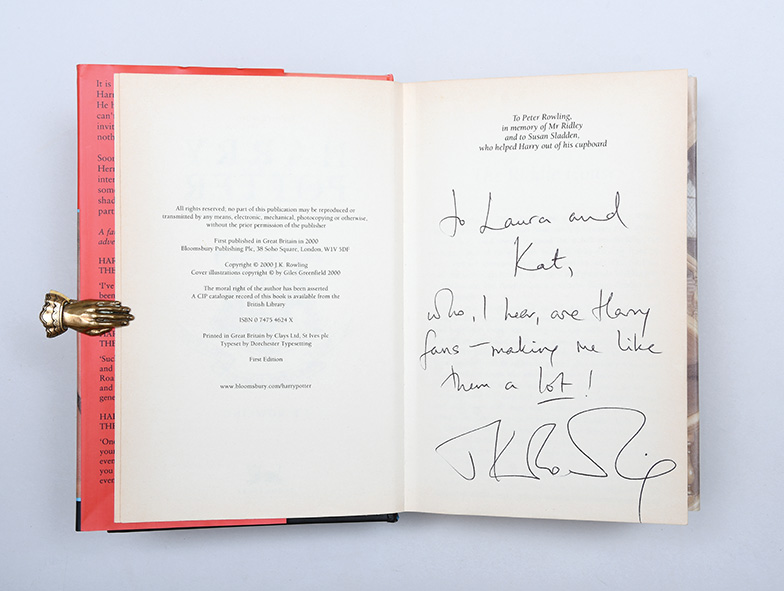 It is
Harr
He h
can't
invit
noth
Soon
Herm
inter
som
shad
part
A fa
adve
HAR
THE
'I've
been
THE
'Suc
and
Roa
and
gene
HAR
THE
'One
your
even
you
ever
All rights reserved; no part of this publication may be reproduced or
transmitted by any means, electronic, mechanical, photocopying or otherwise,
without the prior permission of the publisher
First published in Great Britain in 2000
Bloomsbury Publishing Plc, 38 Soho Square, London, W1V 5DF
Copyright © 2000 J.K. Rowling
Cover illustrations copyright © by Giles Greenfield 2000
The moral right of the author has been asserted
A CIP catalogue record of this book is available from the
British Library
ISBN 0 7475 4624 X
Printed in Great Britain by Clays Ltd, St Ives plc
Typeset by Dorchester Typesetting
First Edition
www.bloomsbury.com/harrypotter
To Peter Rowling,
in memory of Mr Ridley
and to Susan Sladden,
who helped Harry out of his cupboard
To Laura and
Kat,
who, I hear, are Harry
fans – making me like
them a lot!
JK Rowling